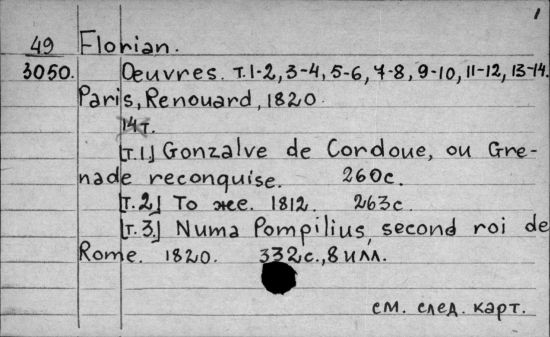 1
49 Florian.
3050. Oeuvres. т.1-2, 3-4, 5-6, 7-8, 9-10, 11-12, 13-14.
Paris, Renouard, 1820.
14т.
[т.1.] Gonzalve de Cordoue, ou Gre-
nade reconquise. 260с.
[т.2.] То же. 1812. 263с.
[т.3.] Numa Pompilius, second roi de
Rome. 1820. 332с., 8 илл.
см. след. карт.